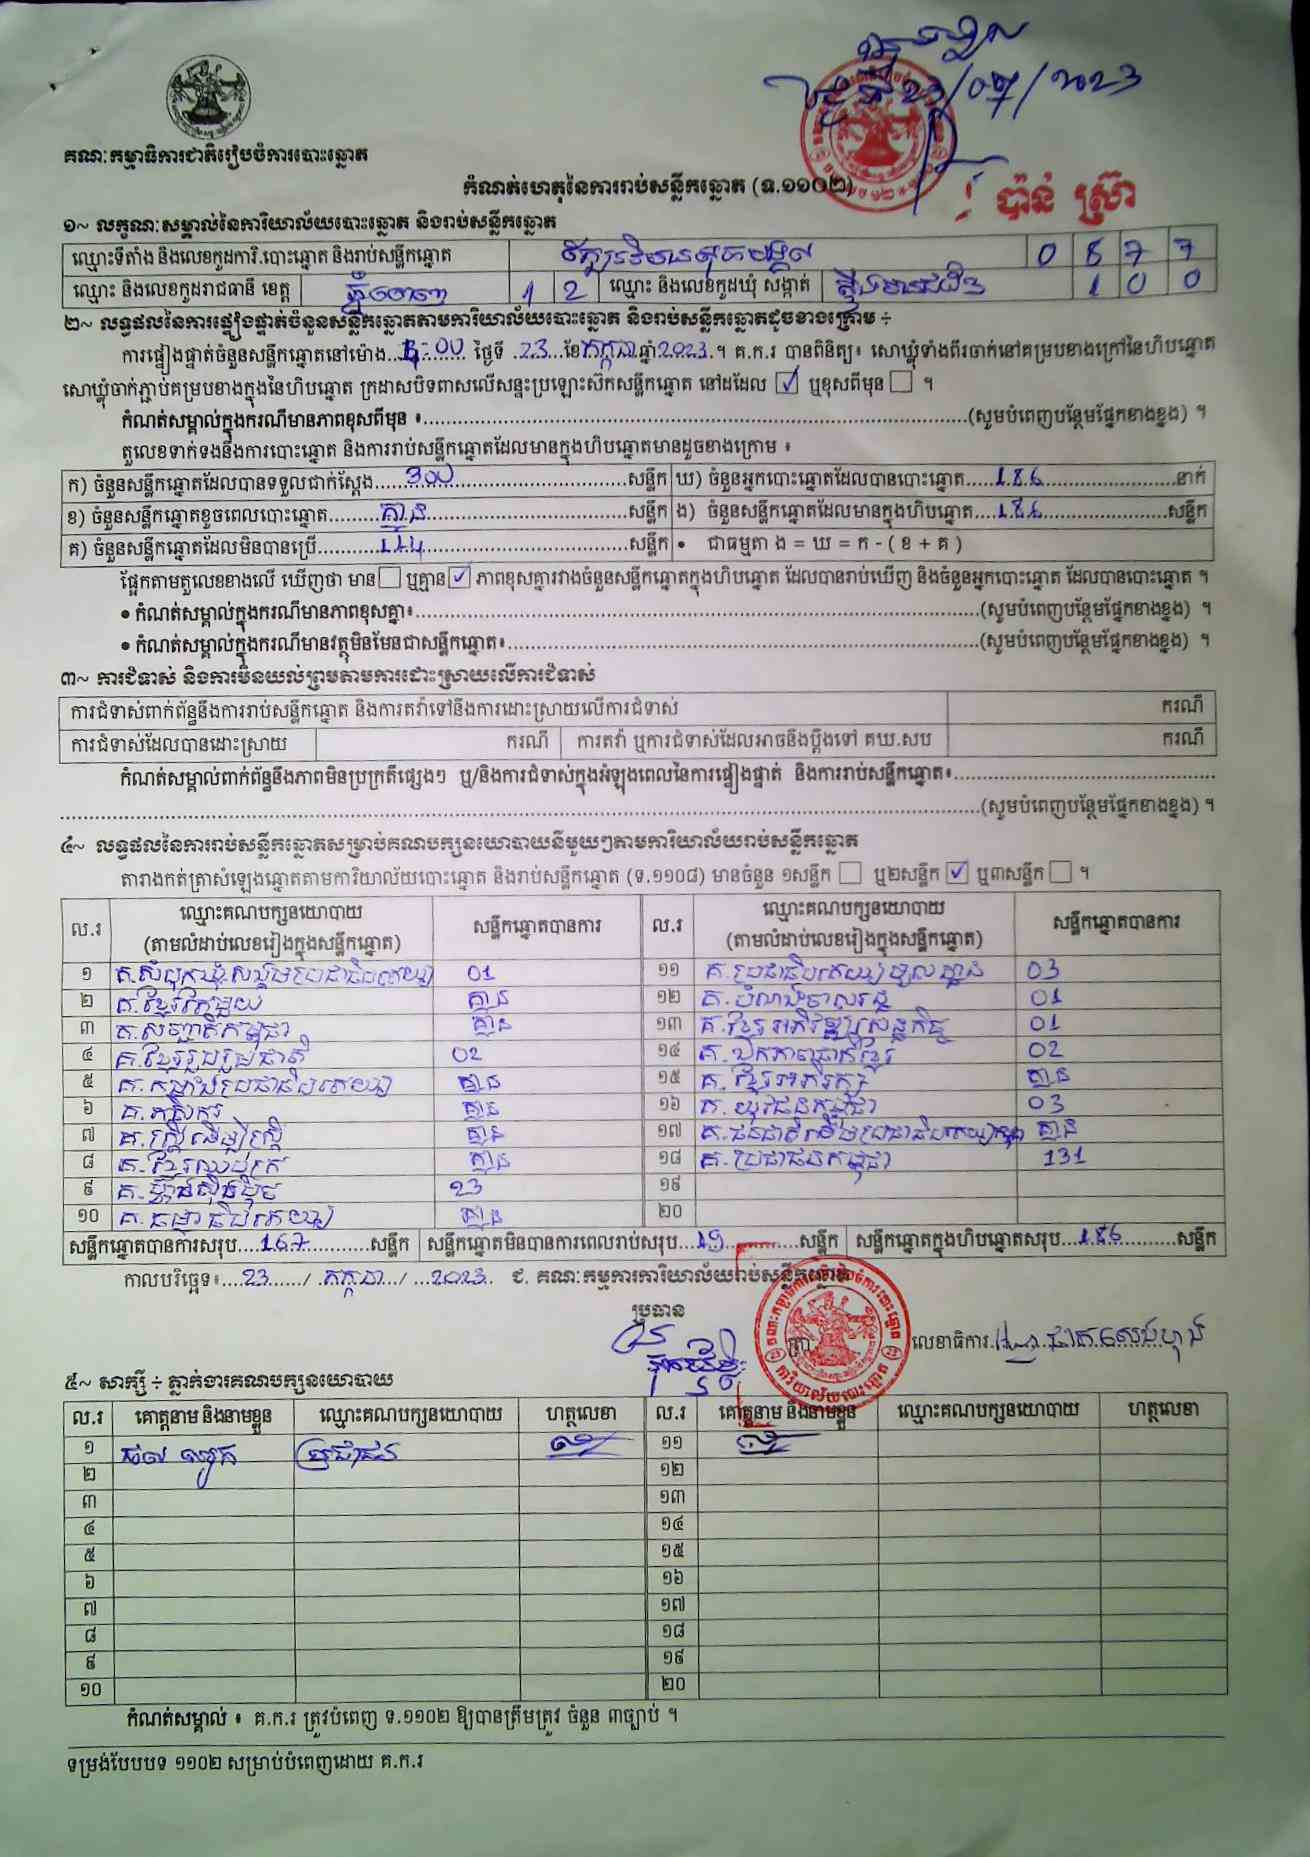 គណៈកម្មាធិការជាតិរៀបចំការបោះឆ្នោត
23/07/2023
ប៉ាន់ ស្រ៊ា
កំណត់ហេតុនៃការរាប់សន្លឹកឆ្នោត (ទ.១១០២)
១~ លក្ខណៈសម្គាល់នៃការិយាល័យបោះឆ្នោត និងរាប់សន្លឹកឆ្នោត
ឈ្មោះទីតាំង និងលេខកូដការិ.បោះឆ្នោត និងរាប់សន្លឹកឆ្នោត 0 8 7 7
ឈ្មោះ និងលេខកូដរាជធានី ខេត្ត ភ្នំពេញ 1 2 ឈ្មោះ និងលេខកូដឃុំ សង្កាត់ ស្ទឹងមានជ័យ 1 0 0
២~ លទ្ធផលនៃការផ្ទៀងផ្ទាត់ចំនួនសន្លឹកឆ្នោតតាមការិយាល័យបោះឆ្នោត និងរាប់សន្លឹកឆ្នោតដូចខាងក្រោម ÷
ការផ្ទៀងផ្ទាត់ចំនួនសន្លឹកឆ្នោតនៅម៉ោង ថ្ងៃទី 23 ខែ កក្កដា ឆ្នាំ 2023 ។ គ.ក.រ បានពិនិត្យ៖ សោឃ្លុំទាំងពីរចាក់នៅគម្របខាងក្រៅនៃហិបឆ្នោត
សោឃ្លុំចាក់ភ្ជាប់គម្របខាងក្នុងនៃហិបឆ្នោត ក្រដាសបិទពាសលើសន្ទះប្រឡោះស៊កសន្លឹកឆ្នោត នៅដដែល ☑ ឬខុសពីមុន ☐ ។
កំណត់សម្គាល់ក្នុងករណីមានភាពខុសពីមុន ៖ (សូមបំពេញបន្ថែមផ្នែកខាងខ្នង) ។
តួលេខទាក់ទងនឹងការបោះឆ្នោត និងការរាប់សន្លឹកឆ្នោតដែលមានក្នុងហិបឆ្នោតមានដូចខាងក្រោម ៖
ក) ចំនួនសន្លឹកឆ្នោតដែលបានទទួលជាក់ស្តែង 300 សន្លឹក ឃ) ចំនួនអ្នកបោះឆ្នោតដែលបានបោះឆ្នោត 186 នាក់
ខ) ចំនួនសន្លឹកឆ្នោតខូចពេលបោះឆ្នោត គ្មាន សន្លឹក ង) ចំនួនសន្លឹកឆ្នោតដែលមានក្នុងហិបឆ្នោត 186 សន្លឹក
គ) ចំនួនសន្លឹកឆ្នោតដែលមិនបានប្រើ 114 សន្លឹក • ជាធម្មតា ង = ឃ = ក - ( ខ + គ )
ផ្អែកតាមតួលេខខាងលើ ឃើញថា មាន ☐ ឬគ្មាន ☑ ភាពខុសគ្នារវាងចំនួនសន្លឹកឆ្នោតក្នុងហិបឆ្នោត ដែលបានរាប់ឃើញ និងចំនួនអ្នកបោះឆ្នោត ដែលបានបោះឆ្នោត ។
• កំណត់សម្គាល់ក្នុងករណីមានភាពខុសគ្នា៖ (សូមបំពេញបន្ថែមផ្នែកខាងខ្នង) ។
• កំណត់សម្គាល់ក្នុងករណីមានវត្ថុមិនមែនជាសន្លឹកឆ្នោត៖ (សូមបំពេញបន្ថែមផ្នែកខាងខ្នង) ។
៣~ ការជំទាស់ និងការមិនយល់ព្រមតាមការដោះស្រាយលើការជំទាស់
ការជំទាស់ពាក់ព័ន្ធនឹងការរាប់សន្លឹកឆ្នោត និងការតវ៉ាទៅនឹងការដោះស្រាយលើការជំទាស់ ករណី
ការជំទាស់ដែលបានដោះស្រាយ ករណី ការតវ៉ា ឬការជំទាស់ដែលអាចនឹងប្តឹងទៅ គឃ.សប ករណី
កំណត់សម្គាល់ពាក់ព័ន្ធនឹងភាពមិនប្រក្រតីផ្សេងៗ ឬ/និងការជំទាស់ក្នុងអំឡុងពេលនៃការផ្ទៀងផ្ទាត់ និងការរាប់សន្លឹកឆ្នោត៖
(សូមបំពេញបន្ថែមផ្នែកខាងខ្នង) ។
៤~ លទ្ធផលនៃការរាប់សន្លឹកឆ្នោតសម្រាប់គណបក្សនយោបាយនីមួយៗតាមការិយាល័យរាប់សន្លឹកឆ្នោត
តារាងកត់ត្រាសំឡេងឆ្នោតតាមការិយាល័យបោះឆ្នោត និងរាប់សន្លឹកឆ្នោត (ទ.១១០៨) មានចំនួន ១សន្លឹក ☐ ឬ២សន្លឹក ☑ ឬ៣សន្លឹក ☐ ។
ល.រ ឈ្មោះគណបក្សនយោបាយ (តាមលំដាប់លេខរៀងក្នុងសន្លឹកឆ្នោត) សន្លឹកឆ្នោតបានការ ល.រ ឈ្មោះគណបក្សនយោបាយ (តាមលំដាប់លេខរៀងក្នុងសន្លឹកឆ្នោត) សន្លឹកឆ្នោតបានការ
១ គ.សំបុកឃ្មុំសង្គមប្រជាធិបតេយ្យ 01 ១១ គ.ប្រជាធិបតេយ្យមូលដ្ឋាន 03
២ គ.ខ្មែរតែមួយ គ្មាន ១២ គ.បំណងចាស់រដ្ឋ 01
៣ គ.សញ្ជាតិកម្ពុជា គ្មាន ១៣ គ.ខ្មែរអភិវឌ្ឍន៍សេដ្ឋកិច្ច 01
៤ គ.ខ្មែររួបរួមជាតិ 02 ១៤ គ.ឯកភាពជាតិខ្មែរ 02
៥ គ.កម្លាំងប្រជាធិបតេយ្យ គ្មាន ១៥ គ.ខ្មែរអភិរក្ស គ្មាន
៦ គ.កសិករ គ្មាន ១៦ គ.យុវជនកម្ពុជា 03
៧ គ.ស្ត្រីដើម្បីស្ត្រី គ្មាន ១៧ គ.ជនជាតិដើមប្រជាធិបតេយ្យកម្ពុជា គ្មាន
៨ គ.ខ្មែរឈប់ក្រ គ្មាន ១៨ គ.ប្រជាជនកម្ពុជា 131
៩ គ.ហ៊្វុនស៊ិនប៉ិច 23 ១៩
១០ គ.ធម្មាធិបតេយ្យ គ្មាន ២០
សន្លឹកឆ្នោតបានការសរុប 167 សន្លឹក សន្លឹកឆ្នោតមិនបានការពេលរាប់សរុប 19 សន្លឹក សន្លឹកឆ្នោតក្នុងហិបឆ្នោតសរុប 186 សន្លឹក
កាលបរិច្ឆេទ៖ 23 / កក្កដា / 2023 ជ. គណៈកម្មការការិយាល័យរាប់សន្លឹកឆ្នោត
ប្រធាន
ត្រា
លេខាធិការ
៥~ សាក្សី ÷ ភ្នាក់ងារគណបក្សនយោបាយ
ល.រ គោត្តនាម និងនាមខ្លួន ឈ្មោះគណបក្សនយោបាយ ហត្ថលេខា ល.រ គោត្តនាម និងនាមខ្លួន ឈ្មោះគណបក្សនយោបាយ ហត្ថលេខា
១ ប្រជាជន ១១
២ ១២
៣ ១៣
៤ ១៤
៥ ១៥
៦ ១៦
៧ ១៧
៨ ១៨
៩ ១៩
១០ ២០
កំណត់សម្គាល់ ៖ គ.ក.រ ត្រូវបំពេញ ទ.១១០២ ឱ្យបានត្រឹមត្រូវ ចំនួន ៣ច្បាប់ ។
ទម្រង់បែបបទ ១១០២ សម្រាប់បំពេញដោយ គ.ក.រ